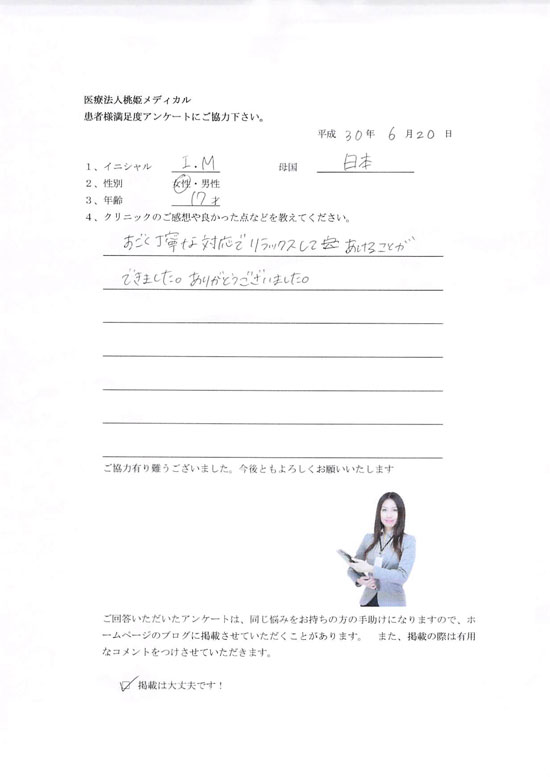 医療法人桃姫メディカル
患者様満足度アンケートにご協力下さい。
平成 30年 6月20日
1、イニシャル I.M 母国 日本
2、性別 女性・男性
3、年齢 17才
4、クリニックのご感想や良かった点などを教えてください。
丁寧な対応でリラックスして あけることが
できました。ありがとうございました。
ご協力有り難うございました。今後ともよろしくお願いいたします
ご回答いただいたアンケートは、同じ悩みをお持ちの方の手助けになりますので、ホ
ームページのブログに掲載させていただくことがあります。 また、掲載の際は有用
なコメントをつけさせていただきます。
☑ 掲載は大丈夫です！